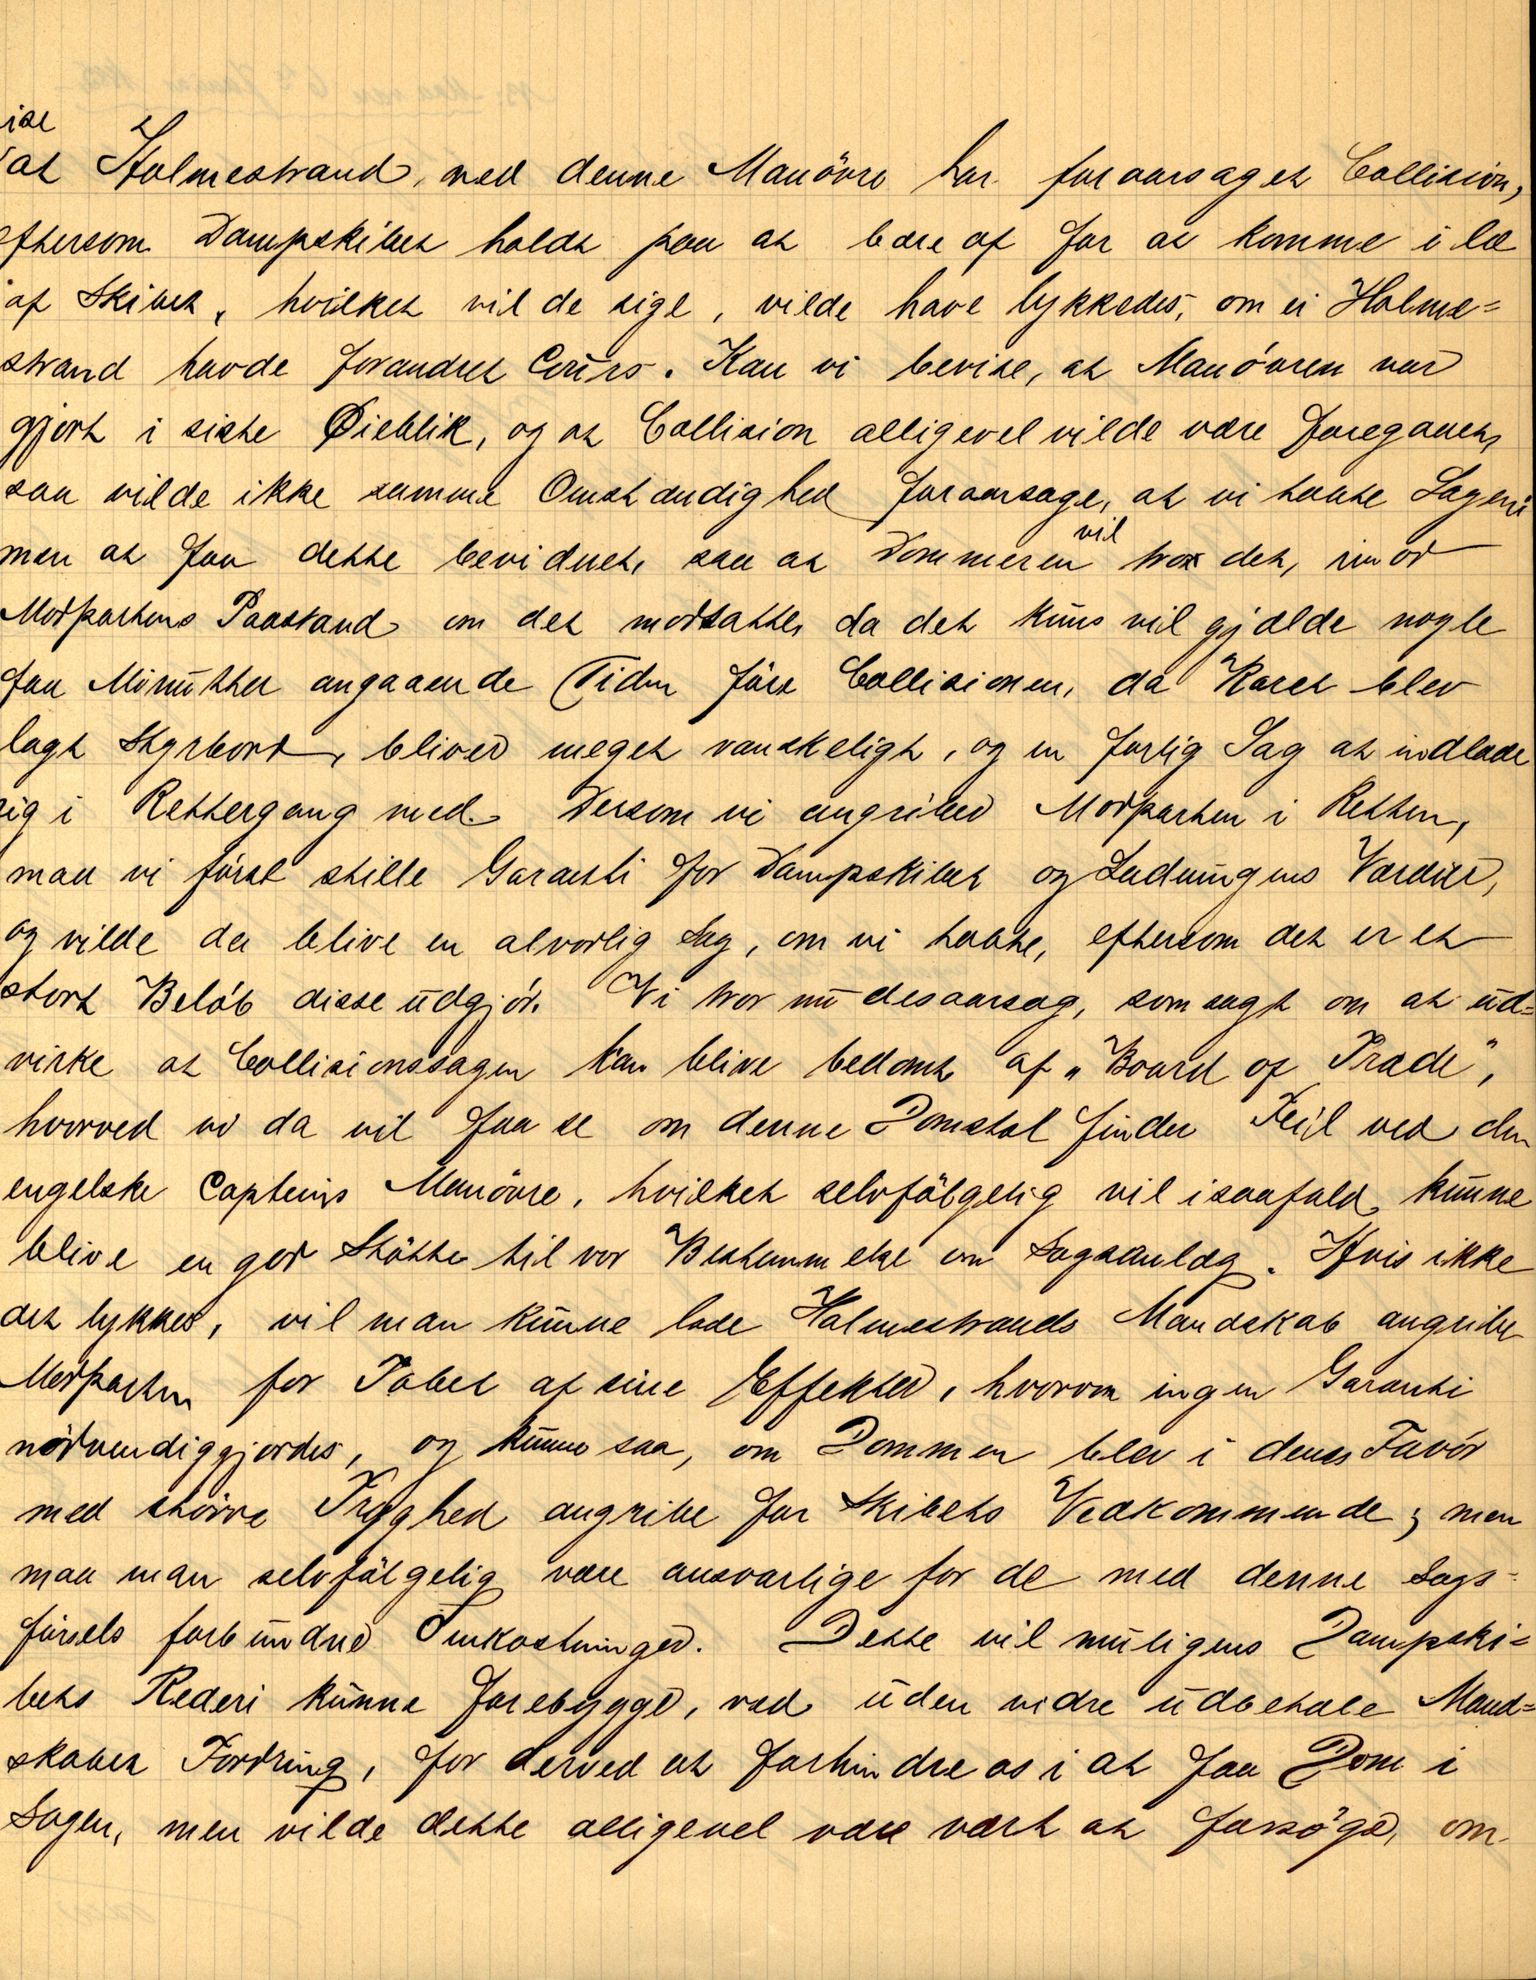 ise
at Holmestrand, ved denne Manövre har foraarsaget Collision,
eftersom Dampskibet holdt paa at bære af for at komme i læ
af Skibet, hvilket vil de sige, vilde have lykkedes, om ei Holme=
strand havde forandret Cours. Kan vi bevise, at Manövren var
gjort i siste Øieblik, og at Collision alligevel vilde være foregaaet,
saa vilde ikke samme Omstændighed foraarsage, at vi tabte Sagen;
men at faa dette bevidnet, saa at Dommeren vil troe det, imod
Modpartens Paastand om det modsatte, da det kuns vil gjælde nogle
faa Minutter angaaende Tiden för Collisionen, da Roret blev
lagt Styrbord, bliver meget vanskeligt, og en farlig Sag at indlade
sig i Rettergang med. Dersom vi angriber Modparten i Retten,
maa vi först stille Garanti for Dampskibet og Ladningens Værdier,
og vilde da blive en alvorlig Sag, om vi tabte, eftersom det er et
stort Belöb disse udgjör. Vi tror nu desaarsag, som sagt om at ud=
virke at Collisionssagen kan blive bedömt af „Board of Trade",
hvorved vi da vil faa se om denne Domstol finder Feil ved den
engelske Capteins Manövre, hvilket selvfölgelig vil isaafald kunne
blive en god Stötte til vor Bestemmelse om Sagsanlæg. Hvis ikke
det lykkes, vil man kunne lade Holmestrands Mandskab angribe
Modparten for Tabet af sine Effekter, hvorom ingen Garanti
nödvendiggjordes, og kunne saa, om Dommen blev i deres Favör
med större Tryghed angribe for Skibets Vedkommende; men
maa man selvfölgelig være ansvarlige for de med denne Sags=
försels forbundne Omkostninger. Dette vil muligens Dampski=
bets Rederi kunne forebygge, ved uden vidre udbetale Mand=
skabet Fordring, for derved at forhindre os i at faa Dom i
Sagen, men vilde dette alligevel være vært at forsöge, om